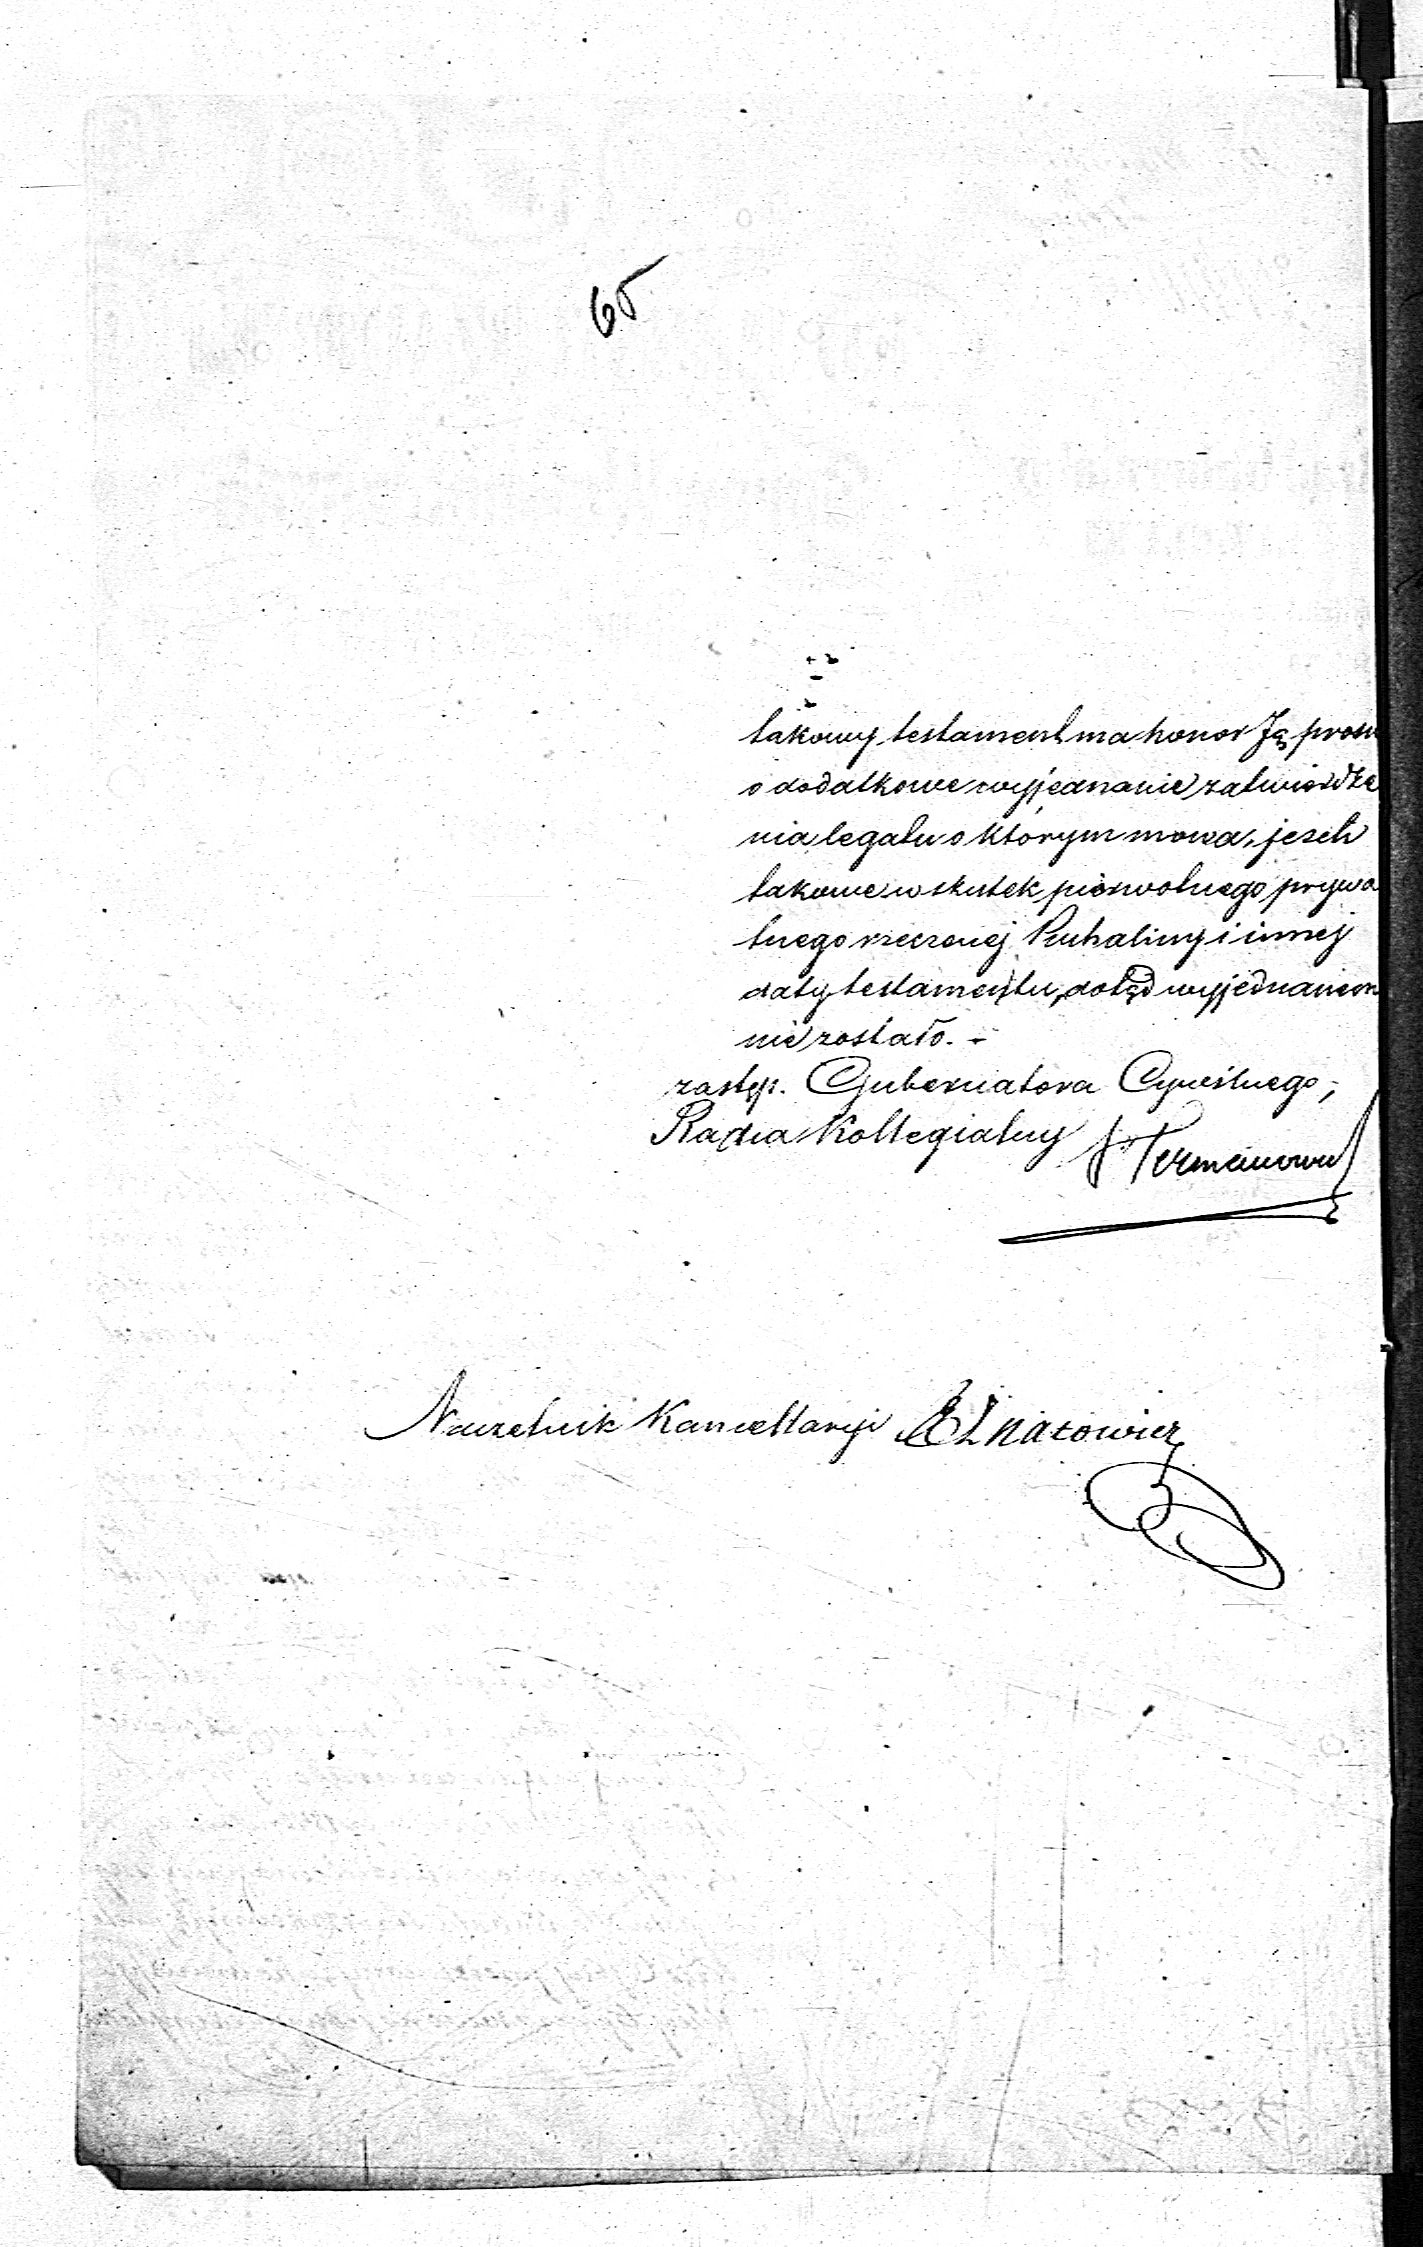 65
takowy testament ma honor Ją prosi
o dodatkowe wyjednanie zatwierdze
nia legatu o którym mowa, jeżeli
takowe w skutek pierwotnego prywa
tnego rzeczonej Puhaliny i innej
daty testamentu, dotąd wyjednanem
nie zostało. -
zastęp. Gubernatora Cywilnego,
Radca Kollegialny
Naczelnik Kancellaryi